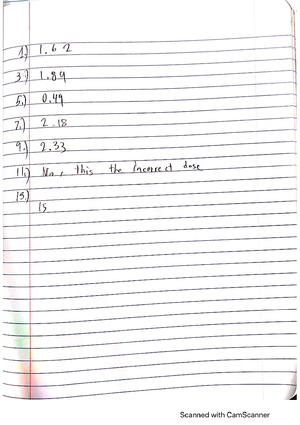 1.) 1.62
3.) 1.84
5.) 0.49
7.) 2.18
9.) 2.33
11.) No, this the incorrect dose
13.)
15
Scanned with CamScanner